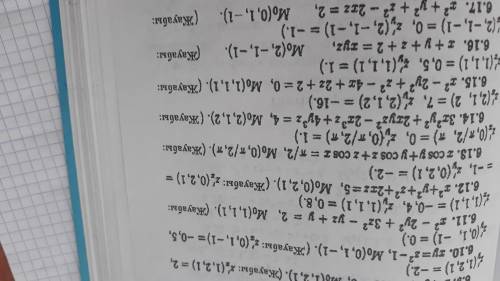 (1, 2, 1) = −2.)
6.10. xy = z² − 1, M₀(0, 1, −1). (Жауабы: z′ₓ(0, 1, −1) = −0,5,
(0, 1, −1) = 0.)
6.11. x² − 2y² + 3z² − yz + y = 2, M₀(1, 1, 1). (Жауабы:
(1, 1, 1) = −0,4, (1, 1, 1) = 0,8.)
6.12. x² + y² + z² + 2xz = 5, M₀(0, 2, 1). (Жауабы: z′ₓ(0, 2, 1) =
= −1, z′ᵧ(0, 2, 1) = −2.)
6.13. x cos y + y cos z + z cos x = π/2, M₀(0, π/2, π). (Жауабы:
z′ₓ(0, π/2, π) = 0, z′ᵧ(0, π/2, π) = 1.)
6.14. 3x²y² + 2xyz² − 2x³z + 4y³z = 4, M₀(2, 1, 2). (Жауабы:
z′ₓ(2, 1, 2) = 7, z′ᵧ(2, 1, 2) = −16.)
6.15. x² − 2y² + z² − 4x + 2z + 2 = 0, M₀(1, 1, 1). (Жауабы:
z′ₓ(1, 1, 1) = 0,5, z′ᵧ(1, 1, 1) = 1.)
6.16. x + y + z + 2 = xyz, M₀(2, −1, −1). (Жауабы:
z′ₓ(2, −1, −1) = 0, z′ᵧ(2, −1, −1) = −1.)
6.17. x² + y² + z² − 2xz = 2, M₀(0, 1, −1). (Жауабы: